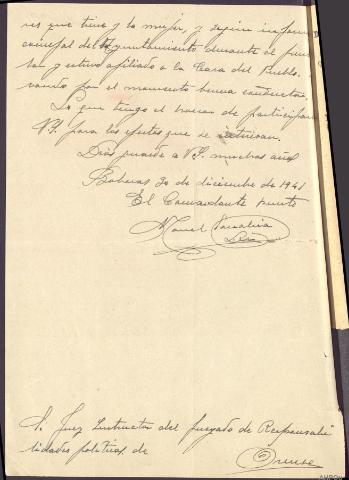 res que tiene y la mujer, y según
concejal del Ayuntamiento durante el
y estuvo afiliado a la Casa del Pueblo.
por el momento buena conducta.
Lo que tengo el honor de participar
V.S. para los efectos que se
Dios guarde a V.S. muchos años
Boboras 30 de diciembre de 1941
El Comandante puesto
Manuel
S. Juez Instructor del Juzgado de Responsabi
lidades políticas de
Orense